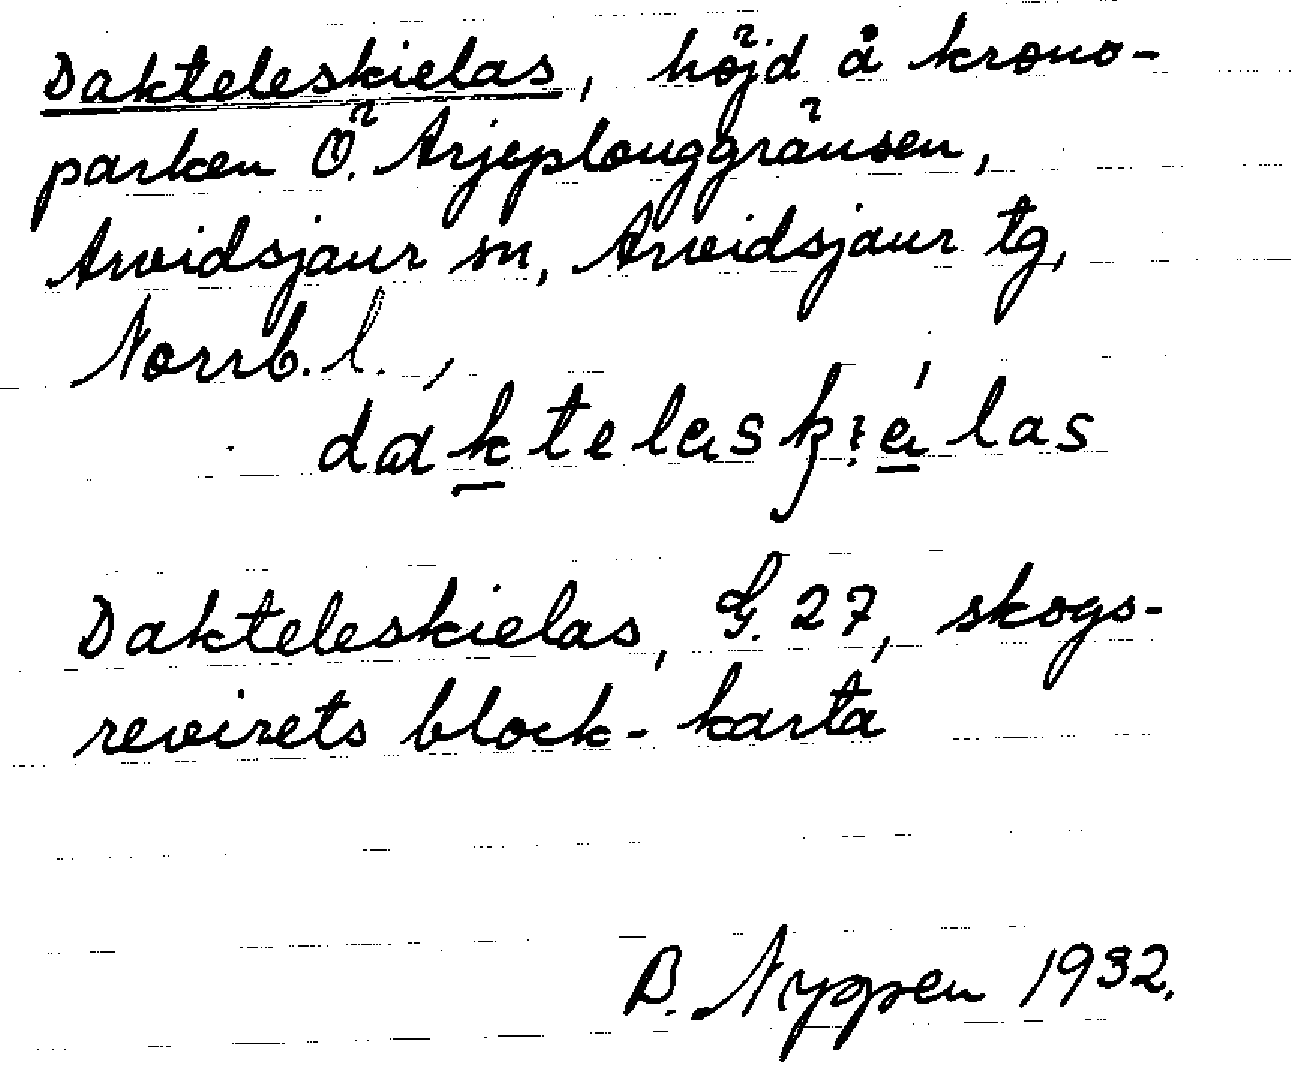 Dakteleskielas, höjd å krono-
parken Ö. Arjeplouggränsen,
Arvidsjaur sn, Arvidsjaur tg,
Norrb. l.,
Dakteleskielas, G. 27, skogs-
revirets block-karta
B. Nyppen 1932.